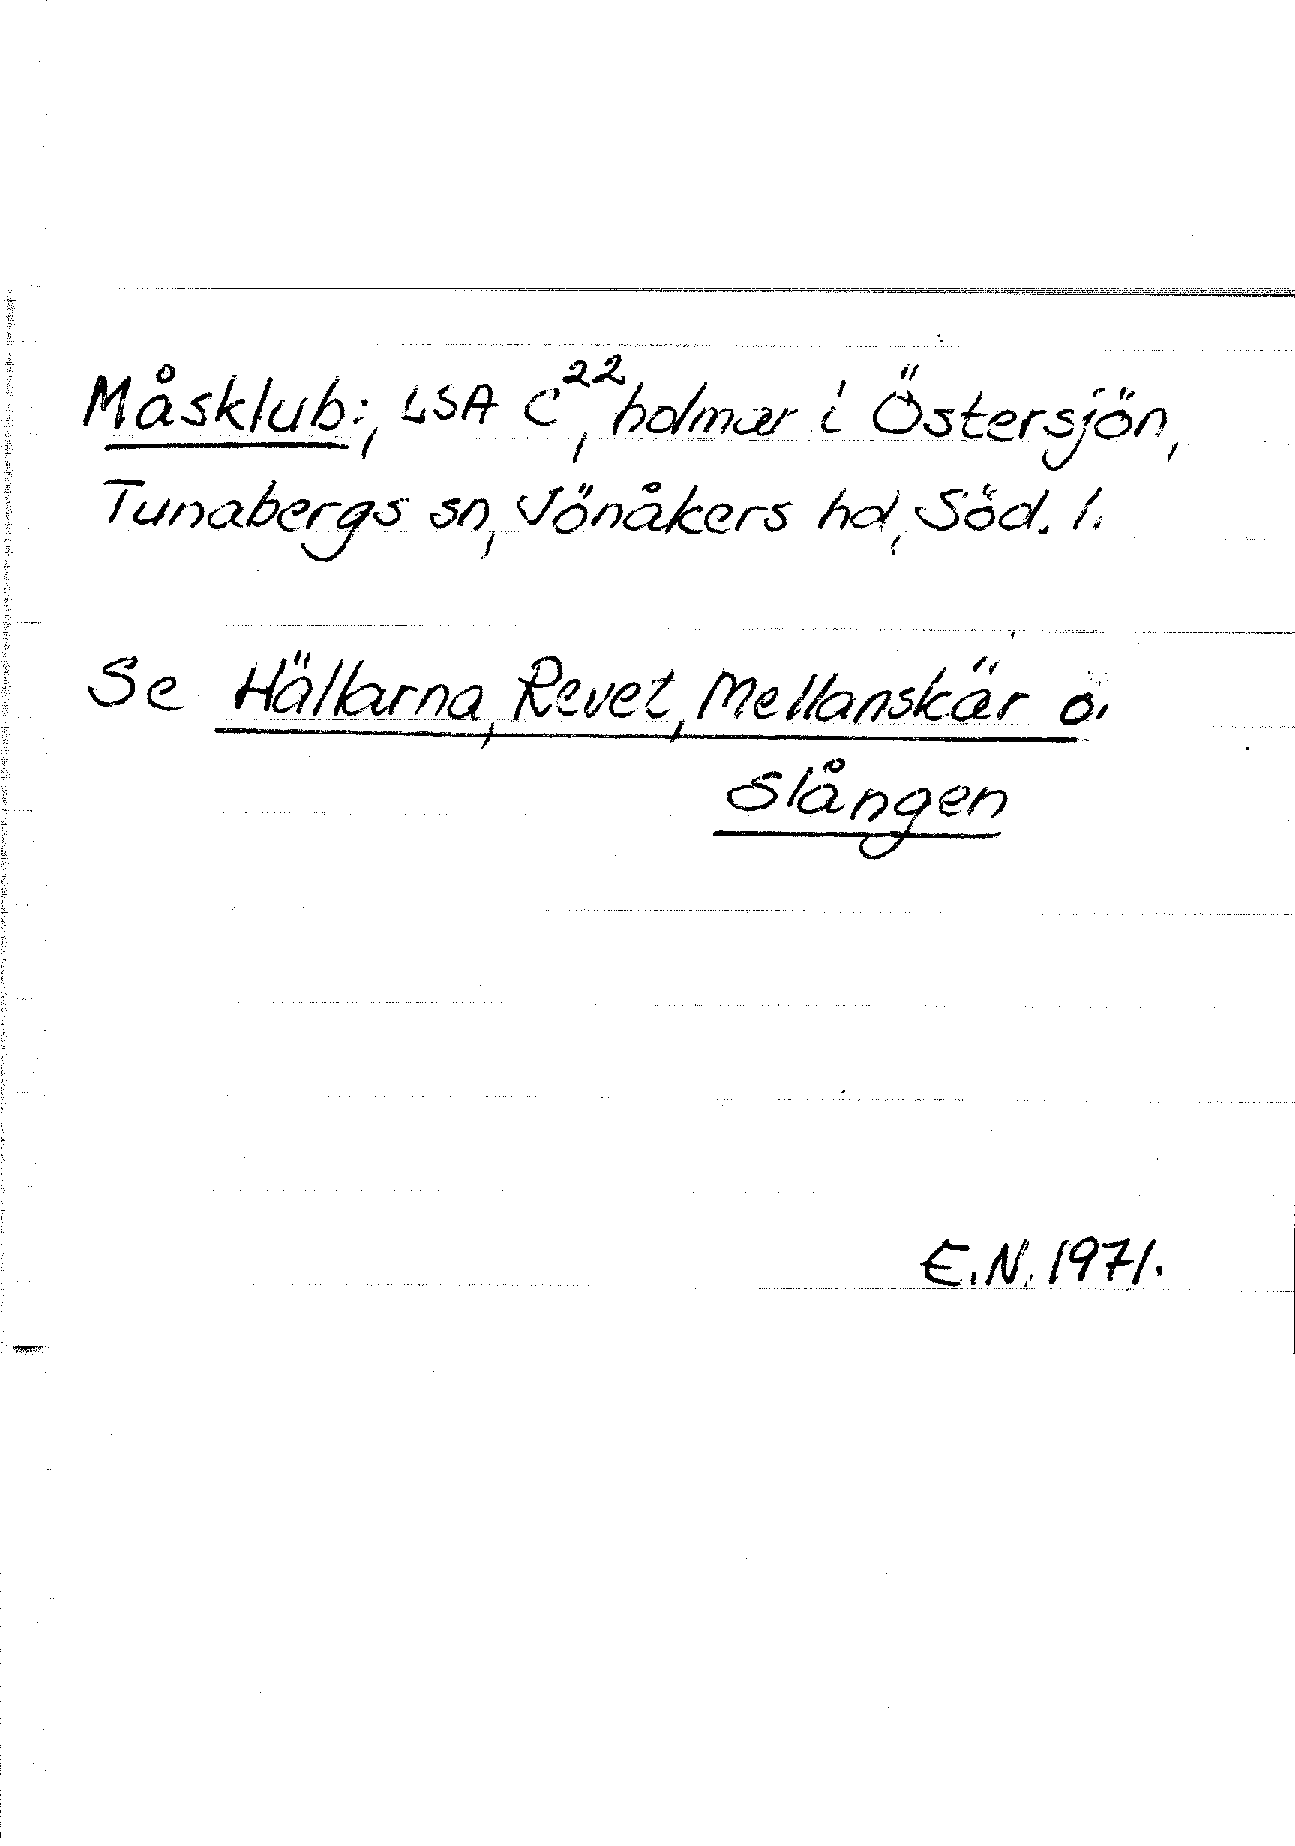 Måsklub:, LSA C²², holmar i Östersjön,
Tunabergs sn, Jönåkers hd, Söd. l.
Se Hällarna, Revet, Mellanskär o.
Slången
E.N. 1971.